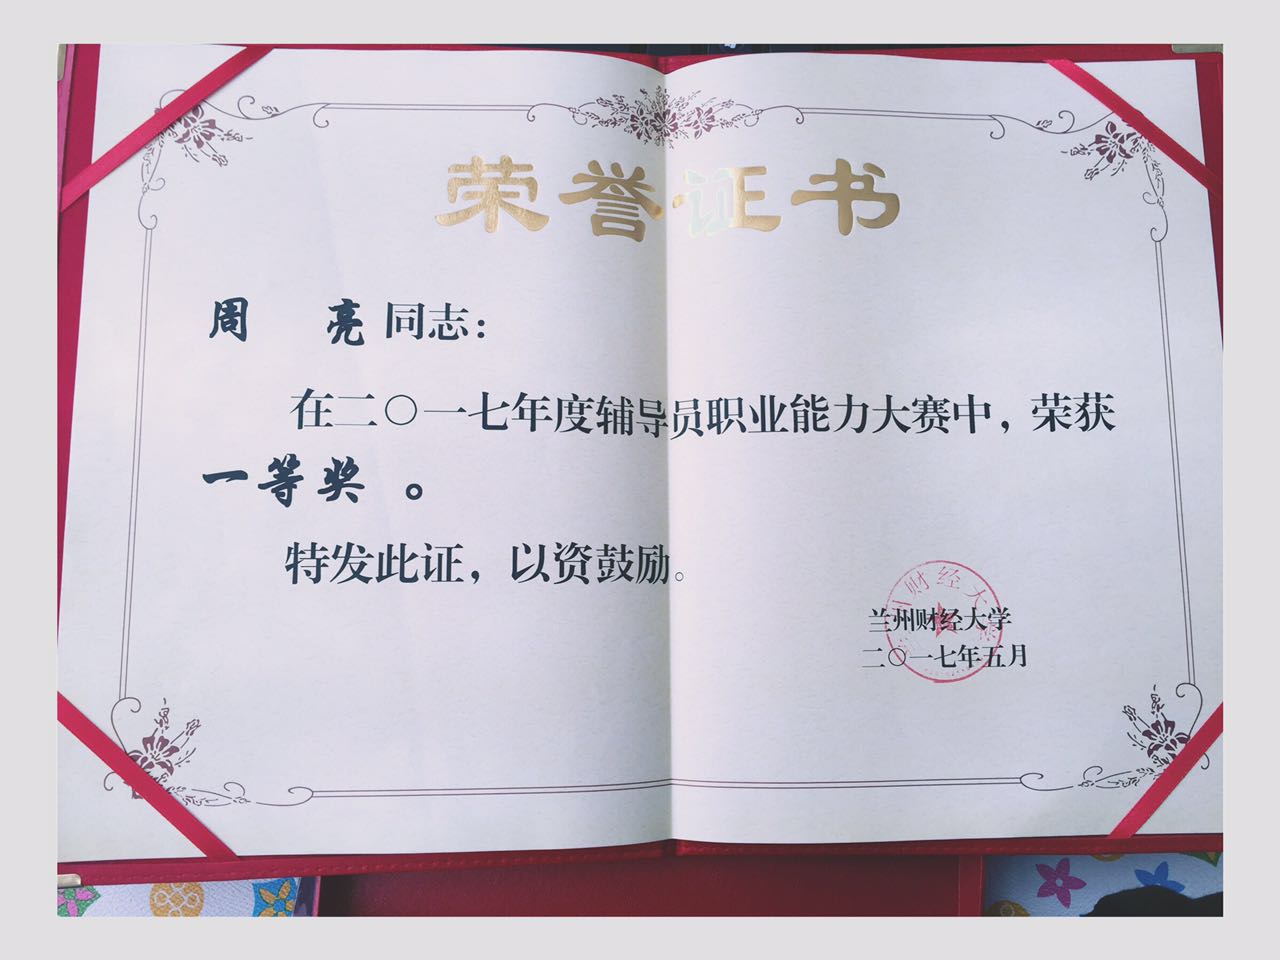 荣誉证书
周 亮 同志：
在二〇一七年度辅导员职业能力大赛中，荣获
一等奖 。
特发此证，以资鼓励。
兰州财经大学
二〇一七年五月